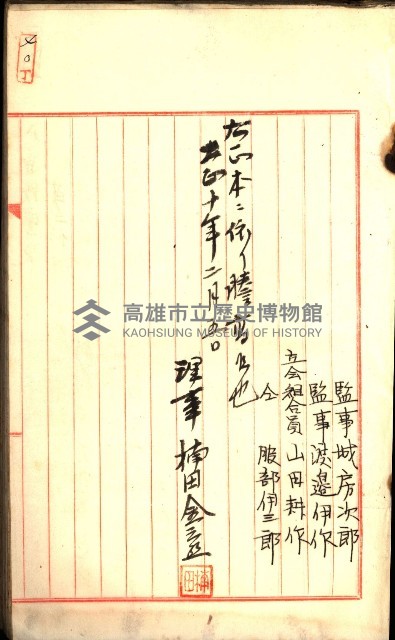 監事 城房次郎
監事 渡邉伊作
立会組合員 山田耕作
仝 服部伊三郎
右正本ニ依リ謄寫ス也
大正十年二月五日
理事 楠田金之丞
高雄市立歷史博物館
KAOHSIUNG MUSEUM OF HISTORY